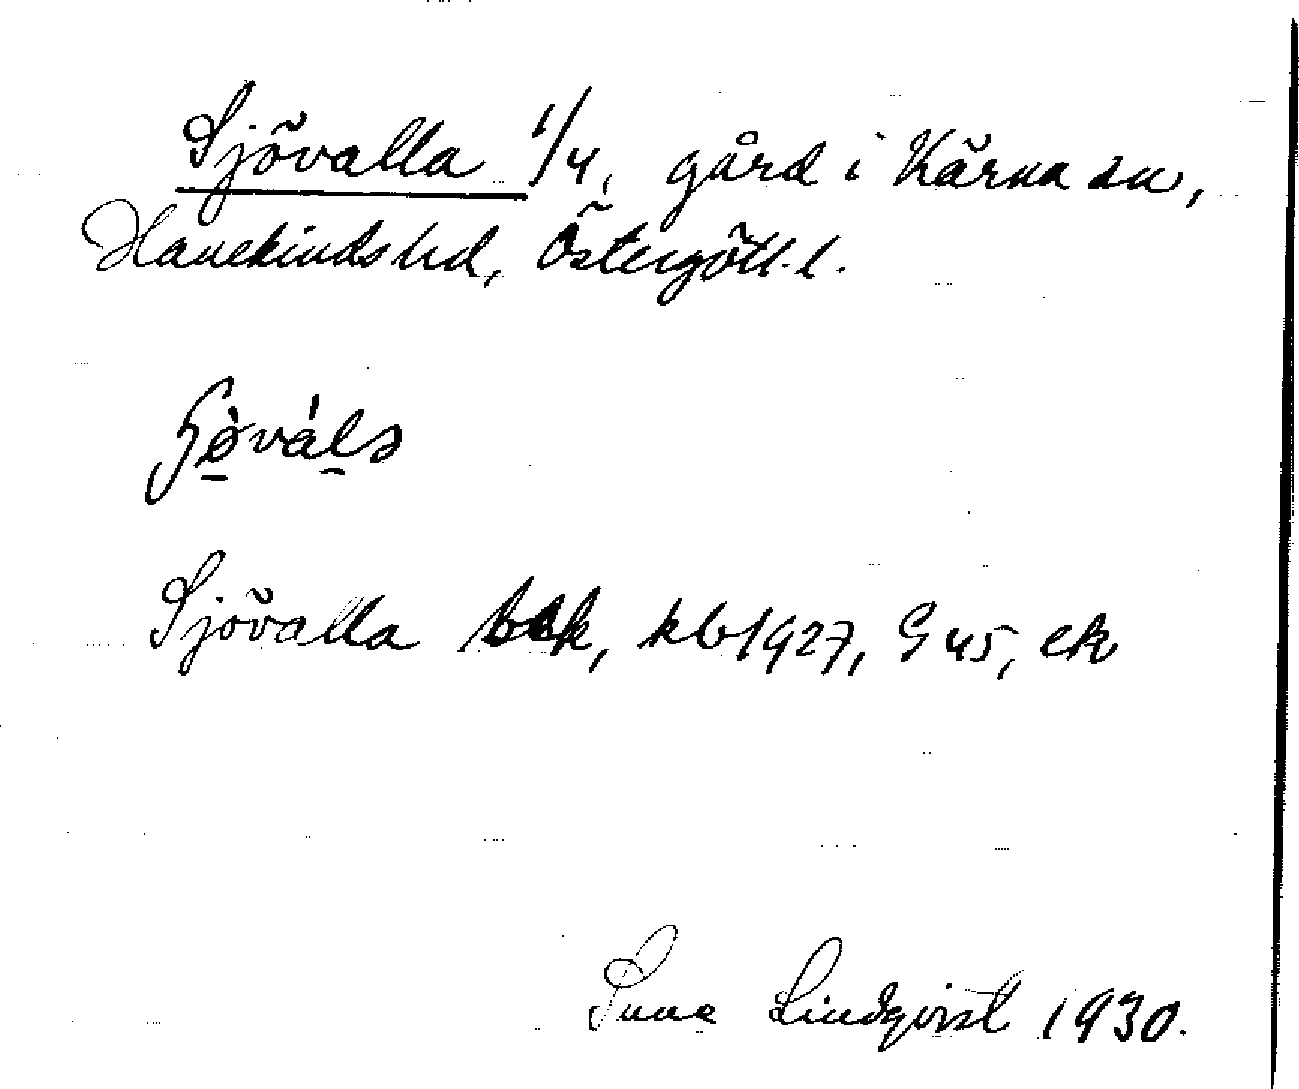 Sjövalla 1/4, gård i Kärna sn,
Hanekinds hd, Östergötl. l.
Sjövalla bek, kb 1927, G 45, ek
Sune Lindqvist 1930.